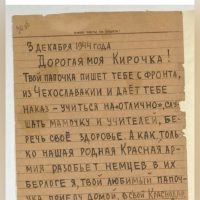 3 ДЕКАБРЯ 1944 ГОДА
ДОРОГАЯ МОЯ КИРОЧКА!
ТВОЙ ПАПОЧКА ПИШЕТ ТЕБЕ С ФРОНТА,
ИЗ ЧЕХОСЛОВАКИИ И ДАЁТ ТЕБЕ
НАКАЗ - УЧИТЬСЯ НА "ОТЛИЧНО", СЛУ
ШАТЬ МАМОЧКУ И УЧИТЕЛЕЙ, БЕ-
РЕЧЬ СВОЁ ЗДОРОВЬЕ. А КАК ТОЛЬ
КО НАША РОДНАЯ КРАСНАЯ АР-
МИЯ РАЗОБЬЁТ НЕМЦЕВ В ИХ
БЕРЛОГЕ Я, ТВОЙ ЛЮБИМЫЙ ПАПОЧ-
КА ПРИЕДУ ДОМОЙ, В СВОЙ КРАСНОДАР